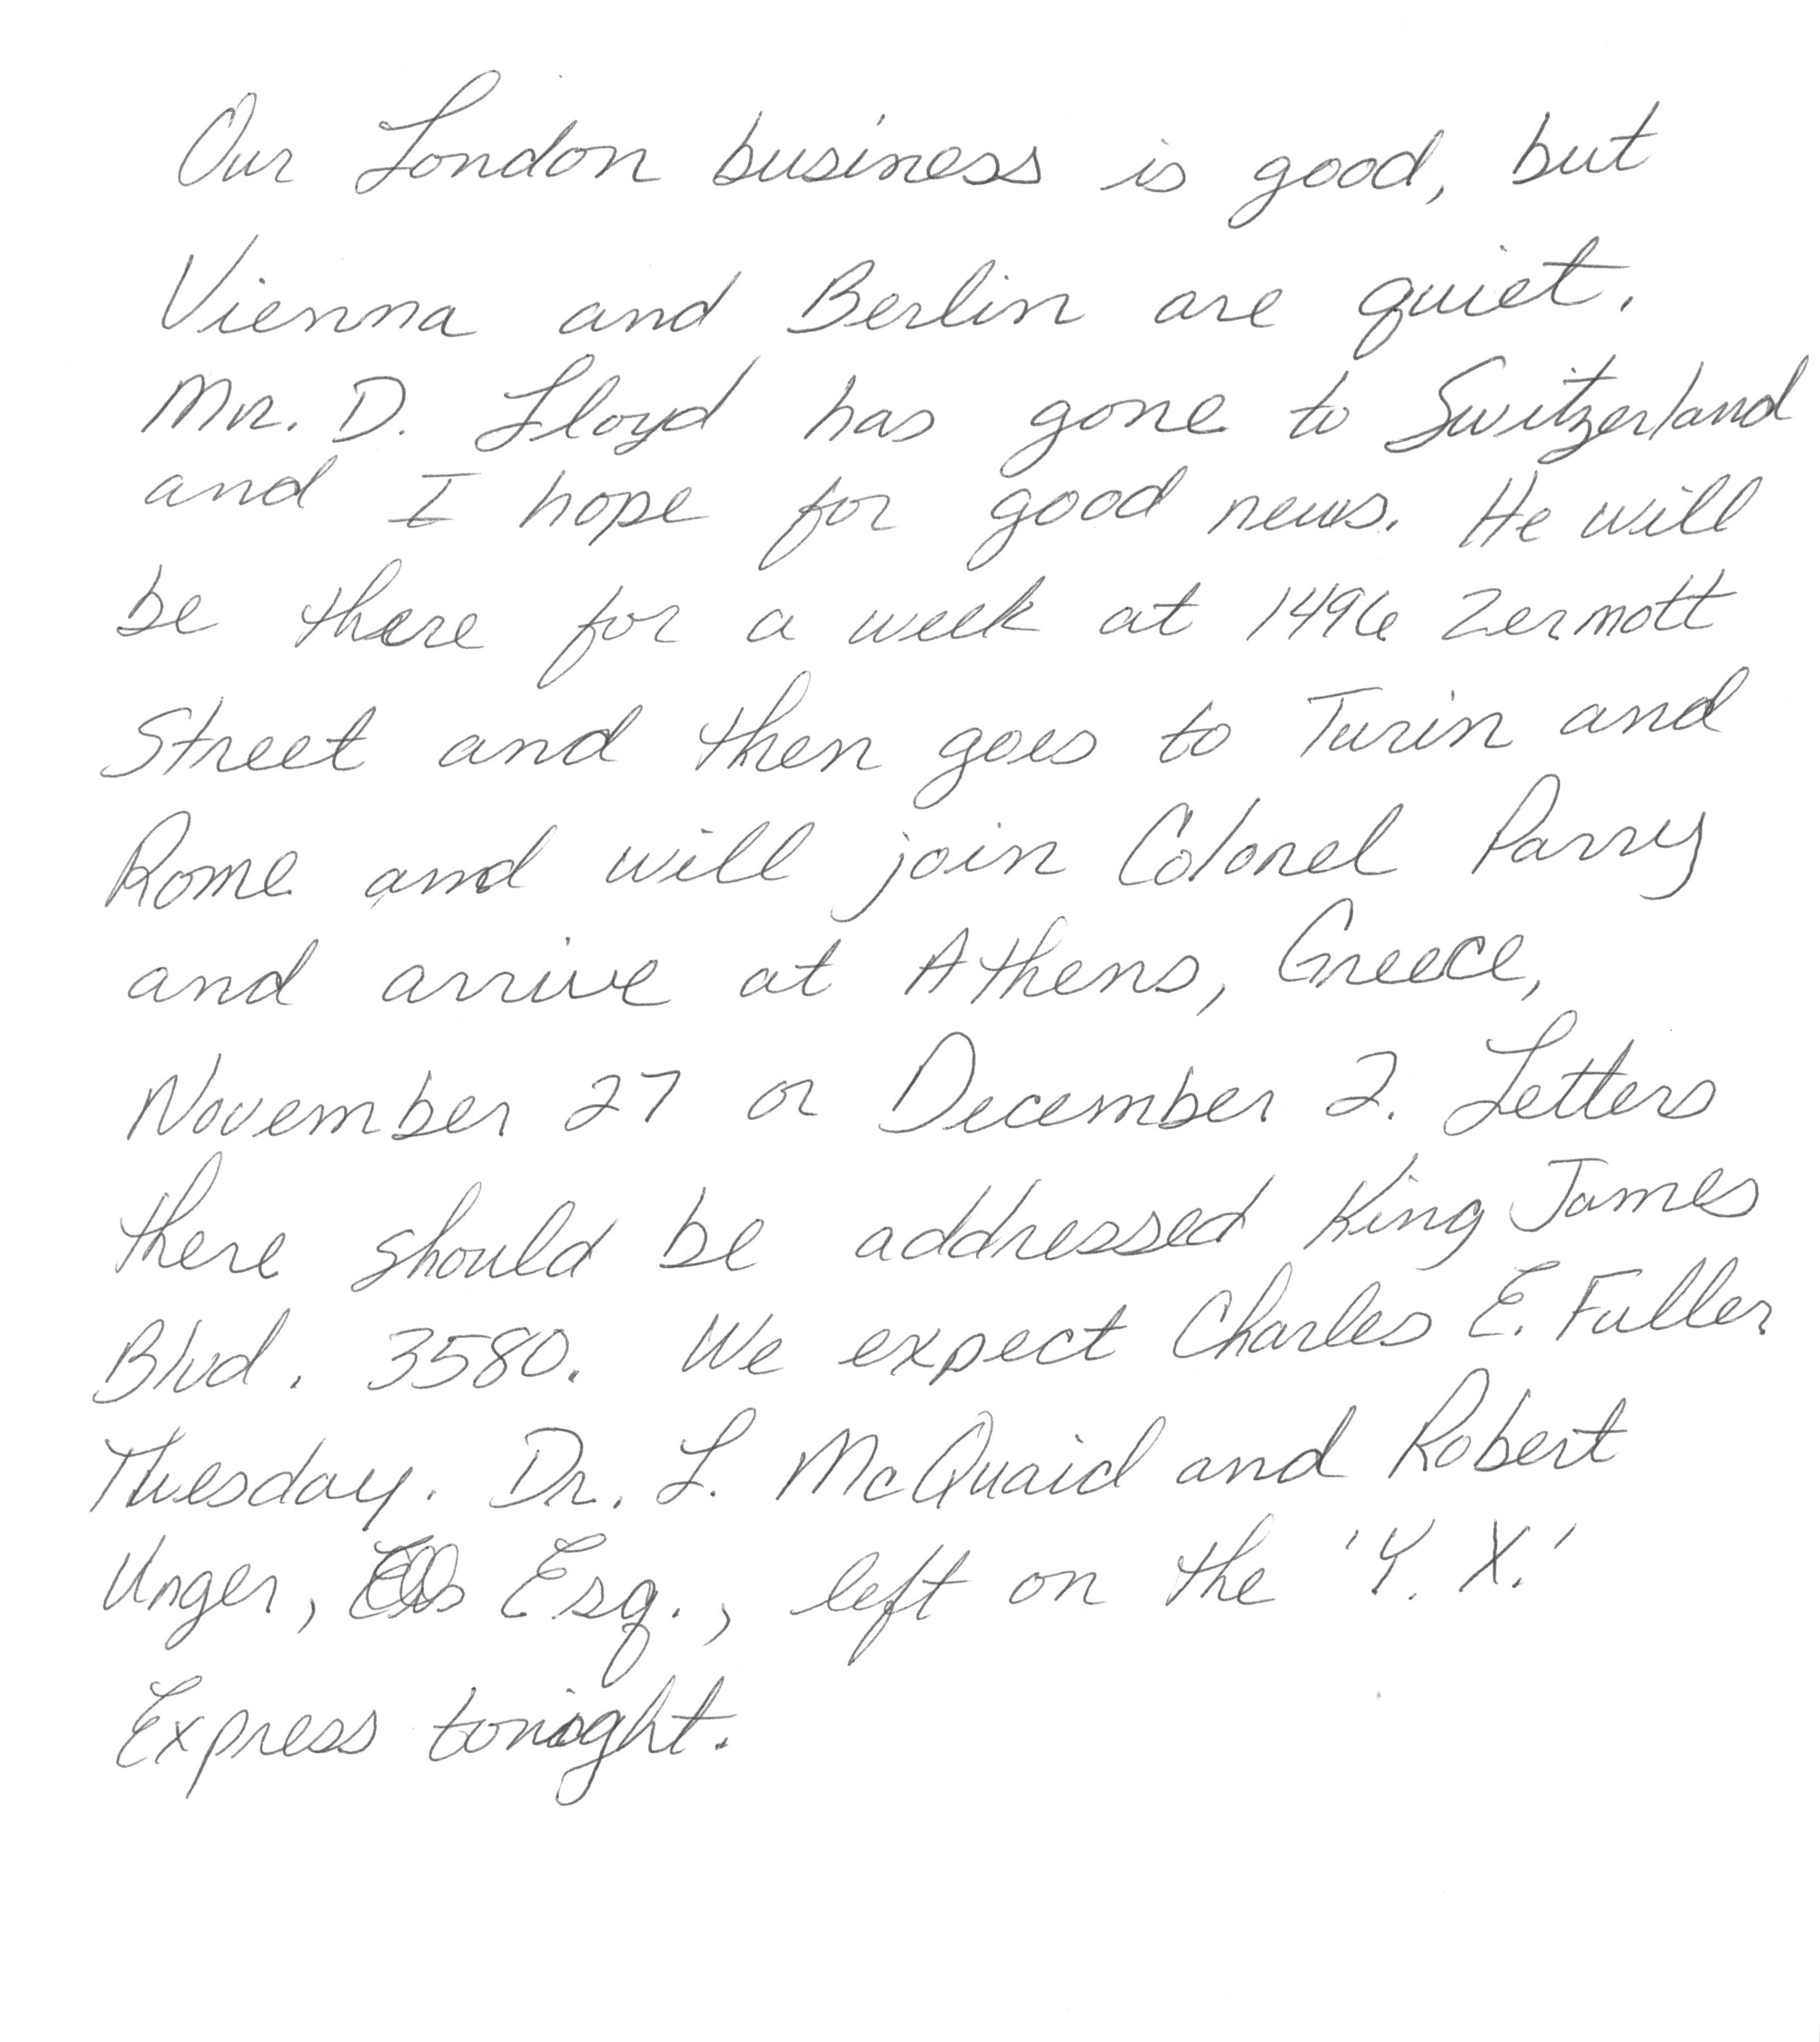 Our London business is good, but
Vienna and Berlin are quiet.
Mr. D. Lloyd has gone to Switzerland
and I hope for good news. He will
be there for a week at 1496 Zermott
Street and then goes to Turin and
Rome and will join Colonel Parry
and arrive at Athens, Greece,
November 27 or December 2. Letters
there should be addressed King James
Blvd. 3580. We expect Charles E. Fuller
Tuesday. Dr. L. McQuaid and Robert
Unger, Esq., left on the 'Y. X.'
Express tonight.